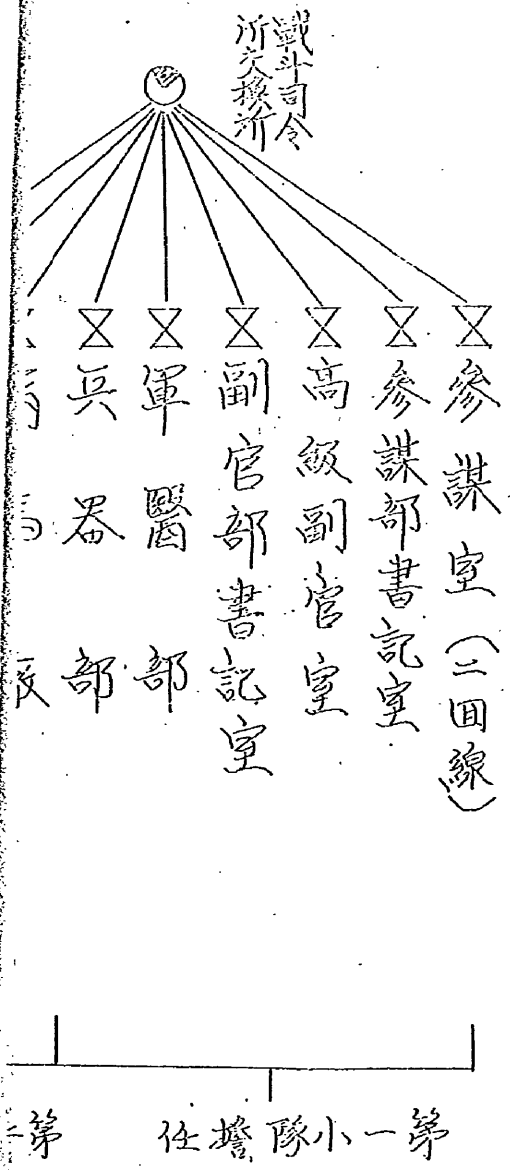 戦斗司令
所交換所
參謀室（二回線）
參謀部書記室
高級副官室
副官部書記室
軍醫部
兵器部
第一小隊擔任
第